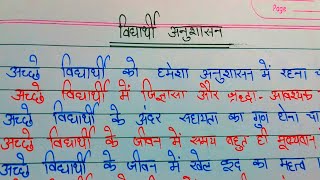 Page
विद्यार्थी अनुशासन
अच्छे विद्यार्थी को हमेशा अनुशासन में रहना
अच्छे विद्यार्थी में जिज्ञासा और श्रध्दा- आवश्यक
अच्छे विद्यार्थी के अंदर सहायता का गुण होना चा
अच्छे विद्यार्थी के जीवन में समय बहुत ही मूल्यवान
अच्छे विद्यार्थी के जीवन में खेल कूद का महत्व